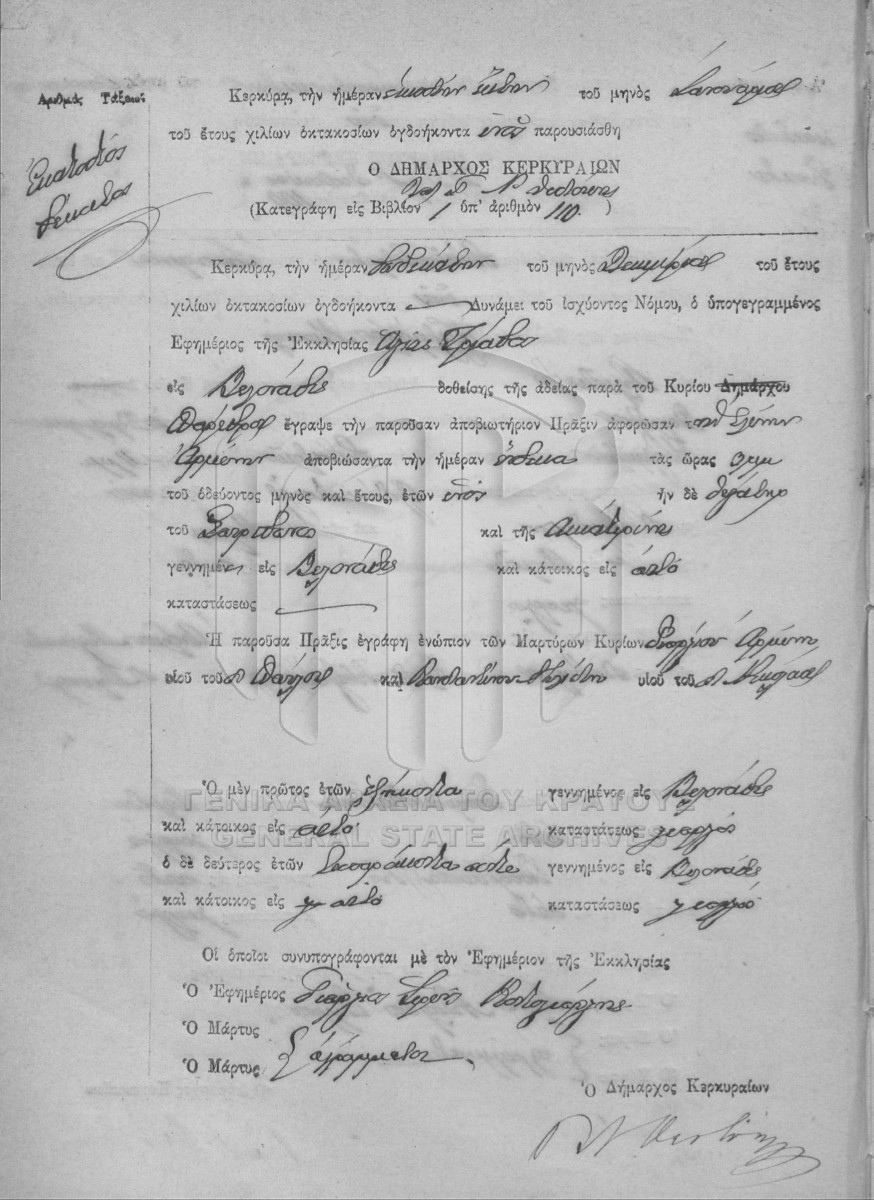 Ἀριθμὸς Τάξεως
Ἑκατοστός
δέκατος
Κερκύρᾳ, τὴν ἡμέραν εἰκοστὴν ἕκτην τοῦ μηνὸς Ἰανουαρίου
τοῦ ἔτους χιλίων ὀκτακοσίων ὀγδοήκοντα ἑνὸς παρουσιάσθη
Ὁ ΔΗΜΑΡΧΟΣ ΚΕΡΚΥΡΑΙΩΝ
(Κατεγράφη εἰς Βιβλίον 1 ὑπ' ἀριθμὸν 110. )
Κερκύρᾳ, τὴν ἡμέραν δωδεκάτην τοῦ μηνὸς Δεκεμβρίου τοῦ ἔτους
χιλίων ὀκτακοσίων ὀγδοήκοντα Δυνάμει τοῦ ἰσχύοντος Νόμου, ὁ ὑπογεγραμμένος
Ἐφημέριος τῆς Ἐκκλησίας Ἁγίας Τριάδος
εἰς Βελονάδες δοθείσης τῆς ἀδείας παρὰ τοῦ Κυρίου Δημάρχου
Παρέδρου ἔγραψε τὴν παροῦσαν ἀποβιωτήριον Πρᾶξιν ἀφορῶσαν τὴν Ἑλένην
Ἀρμένην ἀποβιώσαντα τὴν ἡμέραν ἕνδεκα τὰς ὥρας π.μ.
τοῦ ὁδεύοντος μηνὸς καὶ ἔτους, ἐτῶν ἑνός ἦν δὲ θυγάτηρ
τοῦ Σπυρίδωνος καὶ τῆς Αἰκατερίνης
γεννημένη εἰς Βελονάδες καὶ κάτοικος εἰς αὐτό
καταστάσεως
Ἡ παροῦσα Πρᾶξις ἐγράφη ἐνώπιον τῶν Μαρτύρων Κυρίων Γεωργίου Ἀρμένη
υἱοῦ τοῦ π Παύλου καὶ Κωνσταντίνου υἱοῦ τοῦ π Νικολάου
Ὁ μὲν πρῶτος ἐτῶν ἑξήκοντα γεννημένος εἰς Βελονάδες
καὶ κάτοικος εἰς αὐτό καταστάσεως γεωργός
ὁ δὲ δεύτερος ἐτῶν τεσσαράκοντα πέντε γεννημένος εἰς Βελονάδες
καὶ κάτοικος εἰς αὐτό καταστάσεως γεωργός
Οἱ ὁποῖοι συνυπογράφονται μὲ τὸν Ἐφημέριον τῆς Ἐκκλησίας
Ὁ Ἐφημέριος Γεώργιος Ἱερεὺς
Ὁ Μάρτυς
Ὁ Μάρτυς ἀγράμματοι
Ὁ Δήμαρχος Κερκυραίων
ΓΕΝΙΚΑ ΑΡΧΕΙΑ ΤΟΥ ΚΡΑΤΟΥΣ
GENERAL STATE ARCHIVES